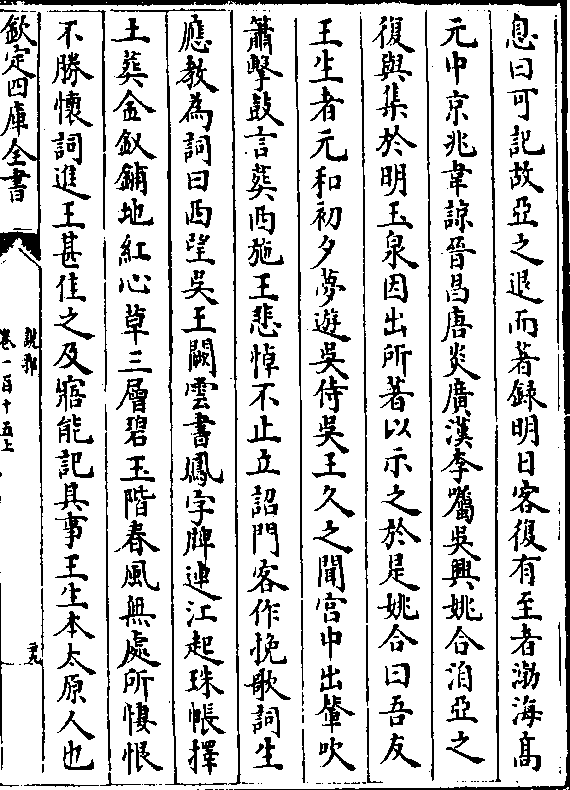 息曰可記故亞之退而著録明日客復有至者渤海髙
元中京兆韋諒晉昌唐炎廣漢李矚吳興姚合洎亞之
復與集於明玉泉因出所著以示之於是姚合曰吾友
王生者元和初夕夢遊吳侍吳王久之聞宫中出輦吹
簫擊鼓言葬西施王悲悼不止立詔門客作挽歌詞生
應教為詞曰西望吳王闕雲書鳳字牌連江起珠帳擇
土葬金釵鋪地紅心草三層碧玉階春風無處所悽恨
不勝懷詞進王甚佳之及寤能記其事王生本太原人也
欽定四庫全書
說郛
卷一百十五上